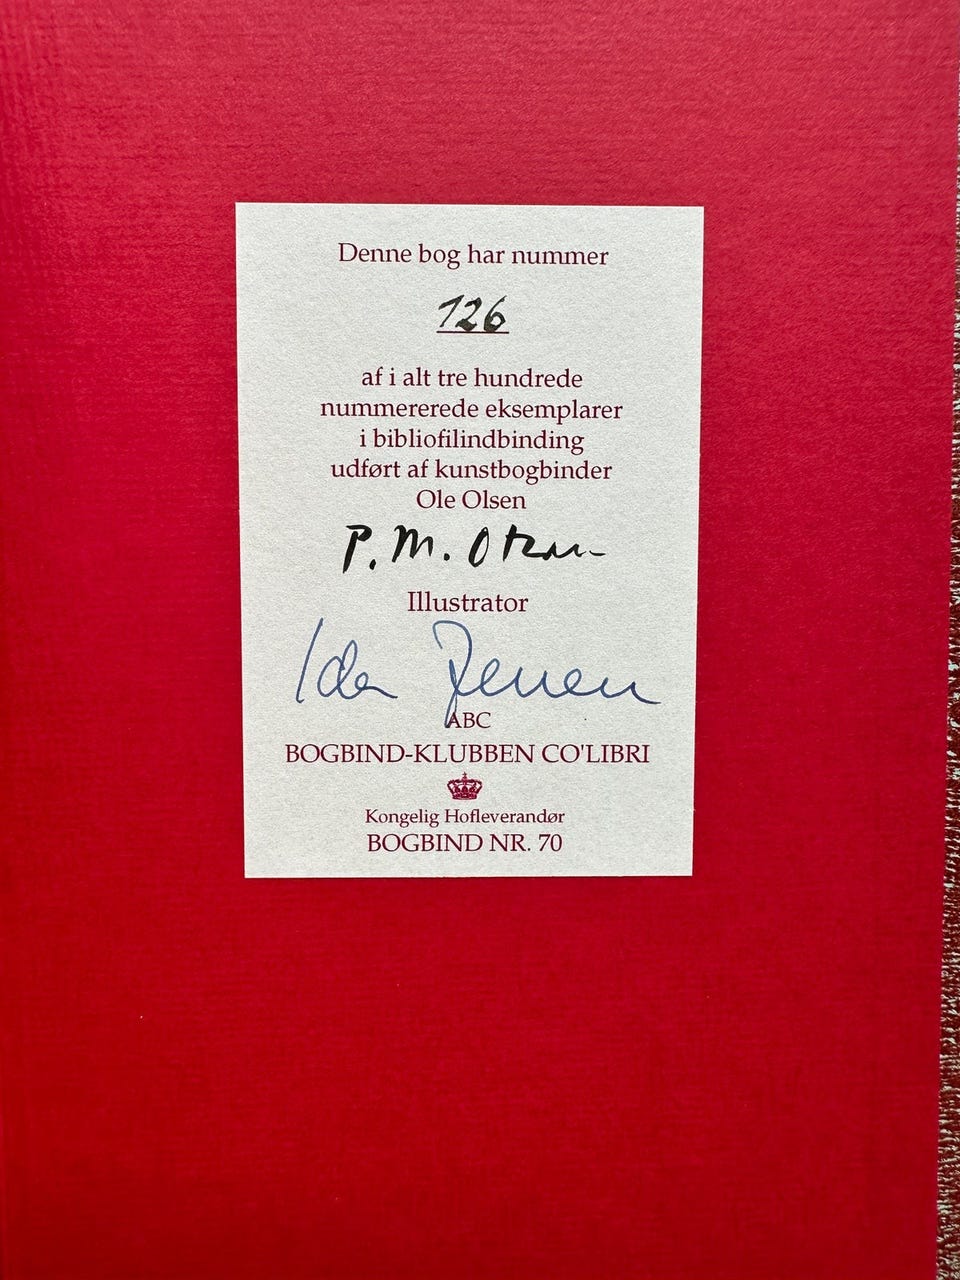 Denne bog har nummer
126
af i alt tre hundrede
nummererede eksemplarer
i bibliofilindbinding
udført af kunstbogbinder
Ole Olsen
P. M.
Illustrator
Ida
ABC
BOGBIND-KLUBBEN CO'LIBRI
Kongelig Hofleverandør
BOGBIND NR. 70